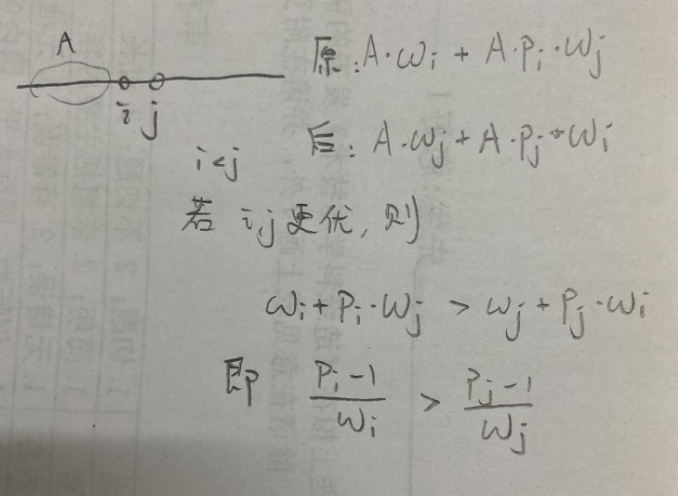 A
i j
原: A·ωi + A·Pi·ωj
i<j
后: A·ωj + A·Pj·ωi
若 i,j 更优, 则
ωi + Pi·ωj > ωj + Pj·ωi
即 (Pi-1)/ωi > (Pj-1)/ωj